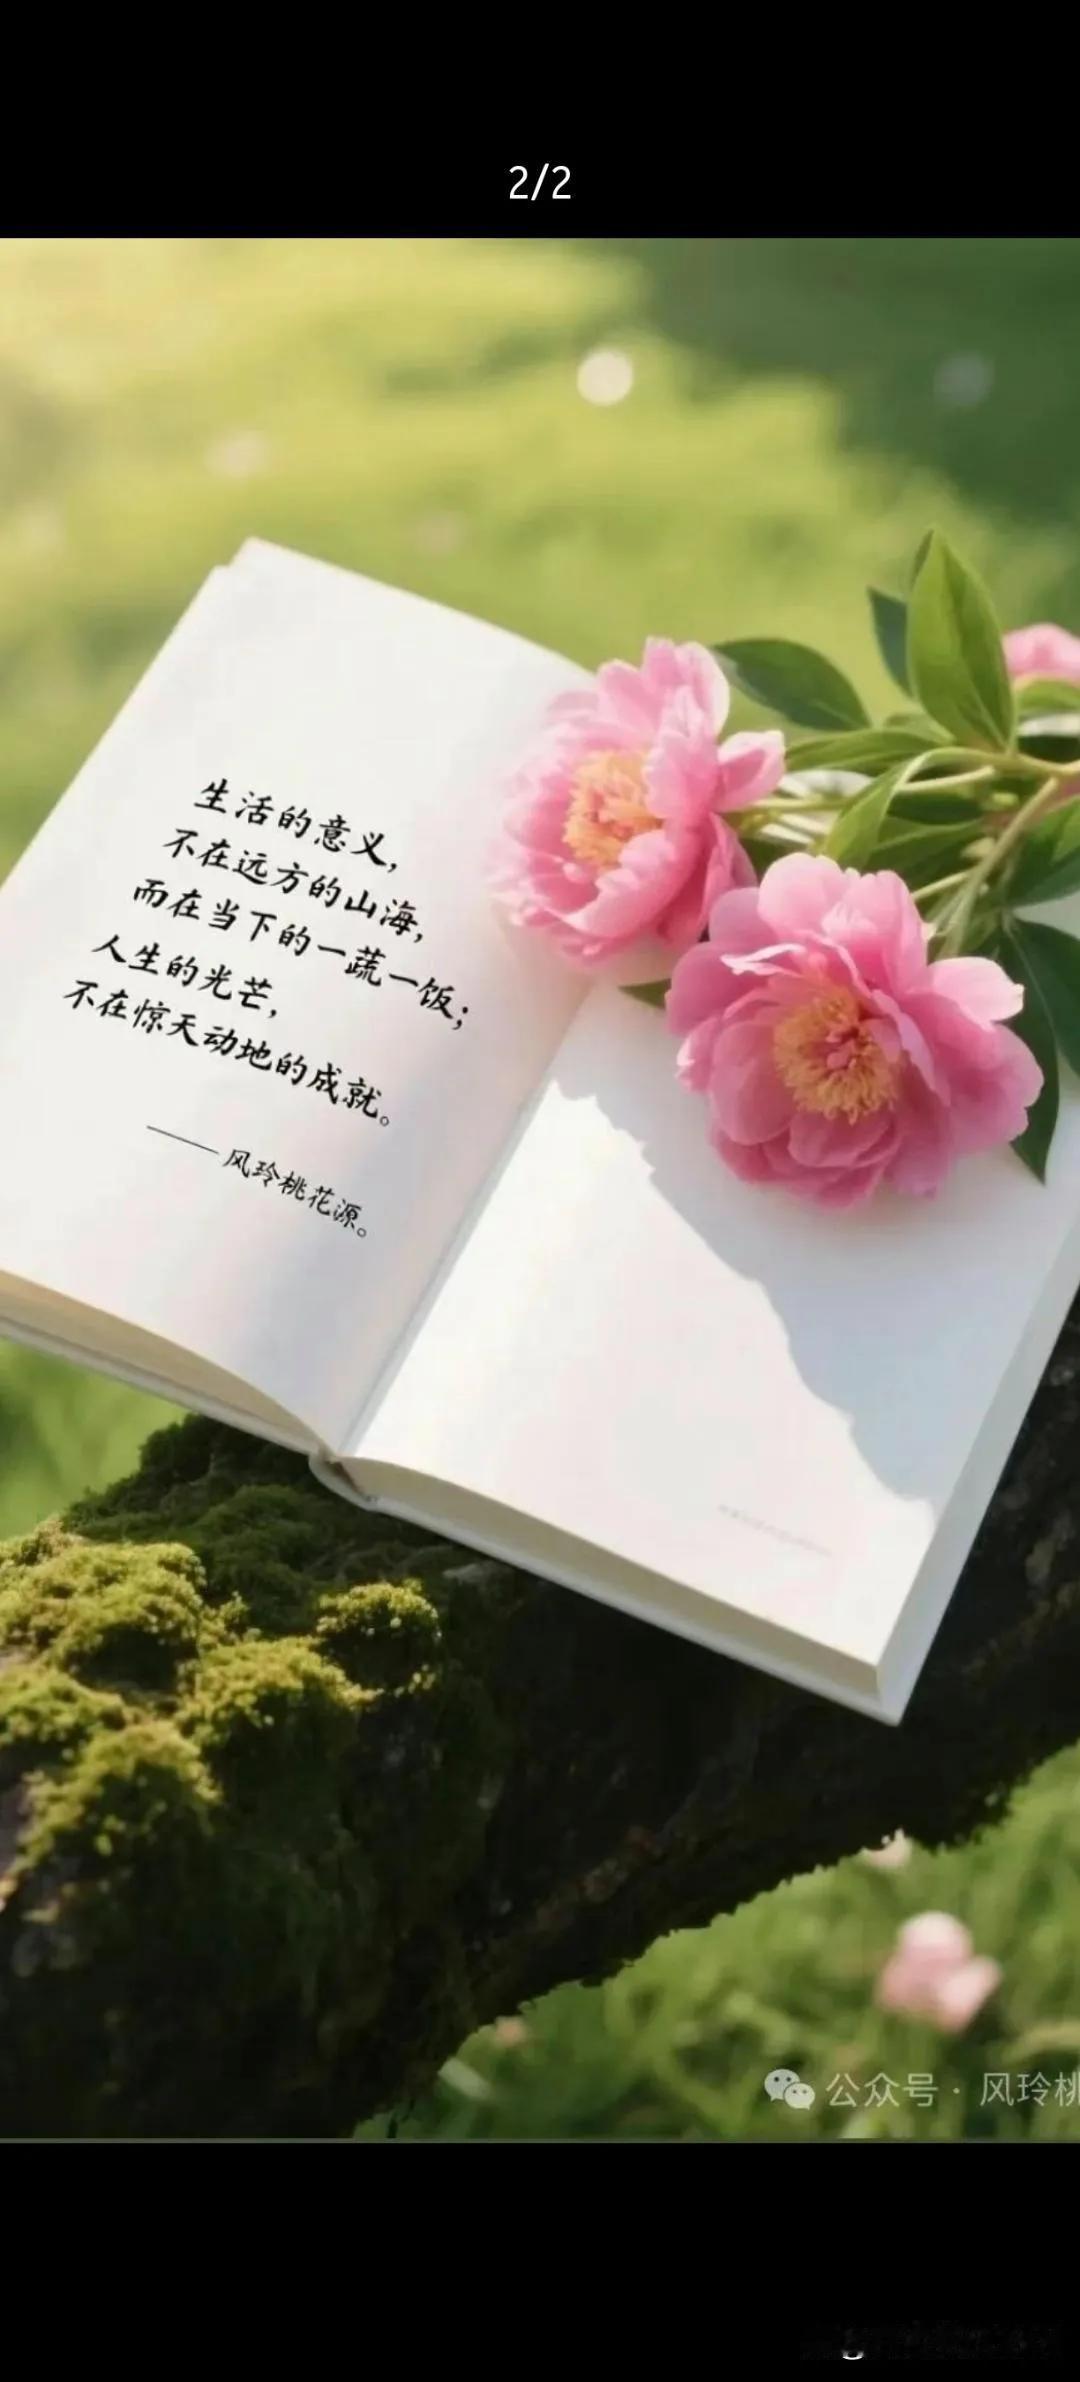 2/2
生活的意义，
不在远方的山海，
而在当下的一蔬一饭；
人生的光芒，
不在惊天动地的成就。
——风玲桃花源。
公众号·风玲桃